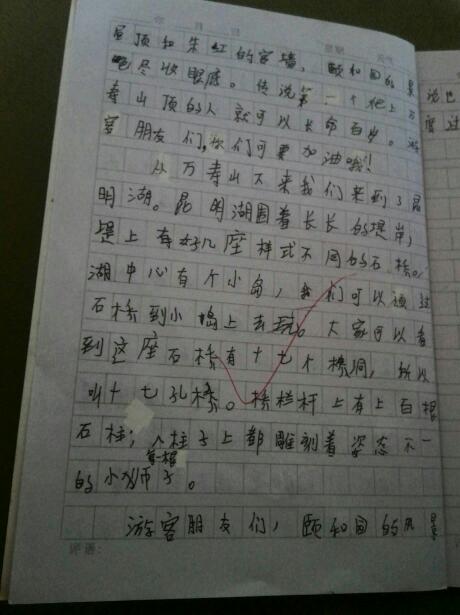 年 月 日 星期 天气
屋顶和朱红的宫墙，颐和园的景
色尽收眼底。传说第一个爬上万
寿山顶的人就可以长命百岁。游
客朋友们，你们可要加油哦！
从万寿山下来我们来到了昆
明湖。昆明湖围着长长的堤岸，
堤上有好几座样式不同的石桥。
湖中心有个小岛，我们可以通过
石桥到小岛上去玩。大家可以看
到这座石桥有十七个桥洞，所以
叫十七孔桥。桥栏杆上有上百根
石柱，每一根柱子上都雕刻着姿态不一
的小狮子。
游客朋友们，颐和园的风景
评语：